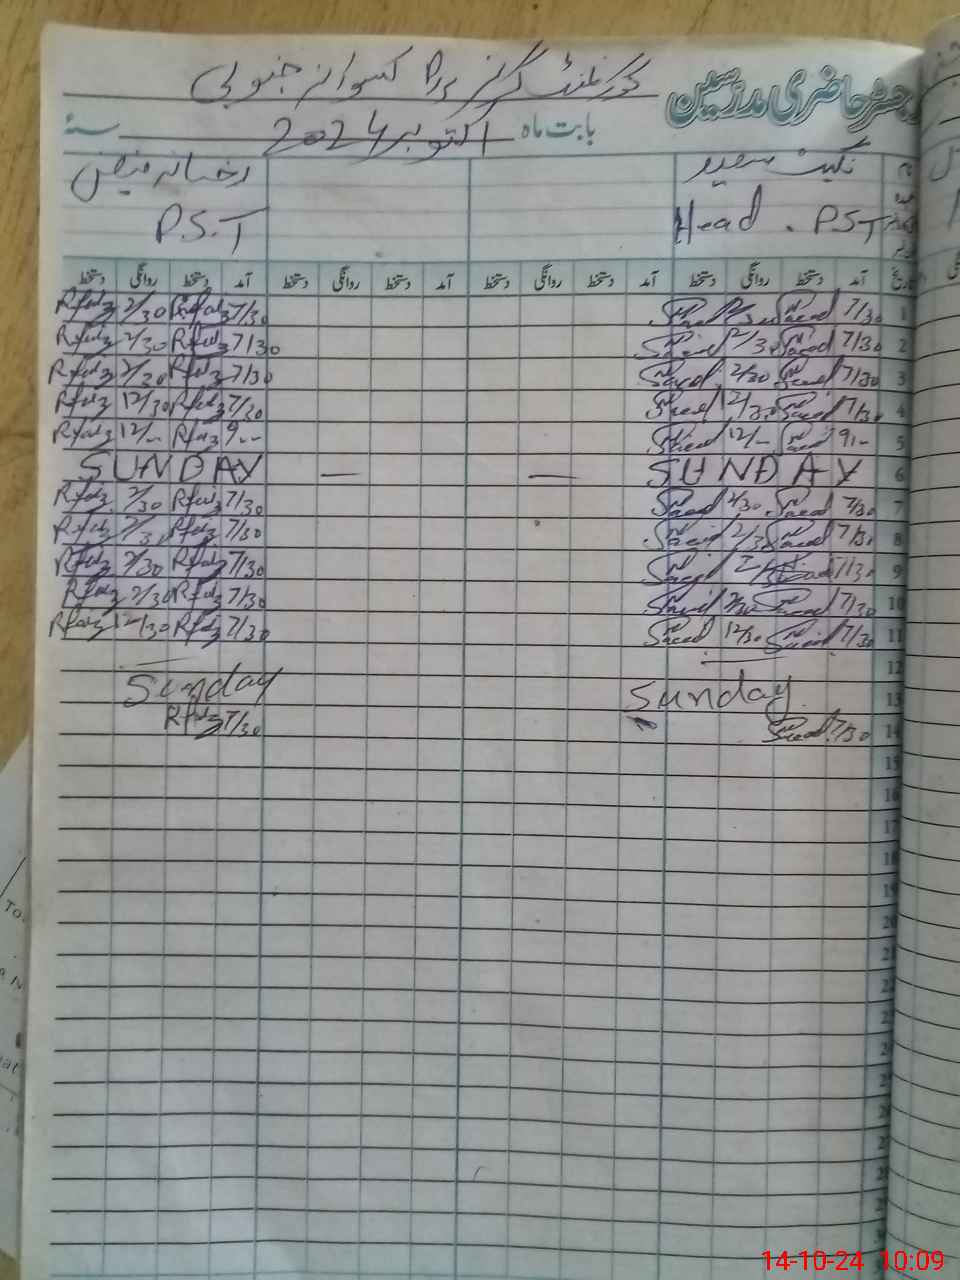 رجسٹر حاضری مدرسین گورنمنٹ گرلز پرائمری جنوبی
بابت ماہ اکتوبر 2024 سنہ
نگہت سعید رخسانہ فیض
Head . PST P.S.T
آمد دستخط روانگی دستخط آمد دستخط روانگی دستخط آمد دستخط روانگی دستخط آمد دستخط روانگی دستخط
1 7/30 Saeed 2/30 Saeed 7/30 Rfaiz 2/30 Rfaiz
2 7/30 Saeed 2/30 Saeed 7/30 Rfaiz 2/30 Rfaiz
3 7/30 Saeed 2/30 Saeed 7/30 Rfaiz 2/30 Rfaiz
4 7/30 Saeed 12/30 Saeed 7/30 Rfaiz 12/30 Rfaiz
5 9/-- Saeed 12/-- Saeed 9/-- Rfaiz 12/-- Rfaiz
6 SUNDAY — — SUNDAY
7 7/30 Saeed 2/30 Saeed 7/30 Rfaiz 2/30 Rfaiz
8 7/30 Saeed 2/30 Saeed 7/30 Rfaiz 2/30 Rfaiz
9 7/30 Saeed Saeed 7/30 Rfaiz 2/30 Rfaiz
10 7/30 Saeed 2/30 Saeed 7/30 Rfaiz 2/30 Rfaiz
11 7/30 Saeed 12/30 Saeed 7/30 Rfaiz 12/30 Rfaiz
12
13 Sunday Sunday
14 7/30 Saeed 7/30 Rfaiz
15
16
17
18
19
20
21
22
23
14-10-24 10:09